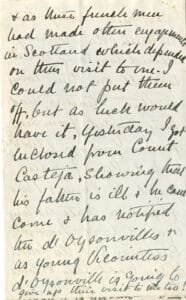 & as these french men
had made other engagements
in Scotland which depended
on their visit to me. I
could not put them
off, but as luck would
have it, Yesterday I got
inclosed from Count
Casteja, showing that
his father is ill & he cant
come & has notified
the d'Oysonvilles &
as young Vicomtess
d'Oysonville is going to
give up their visit to me too!